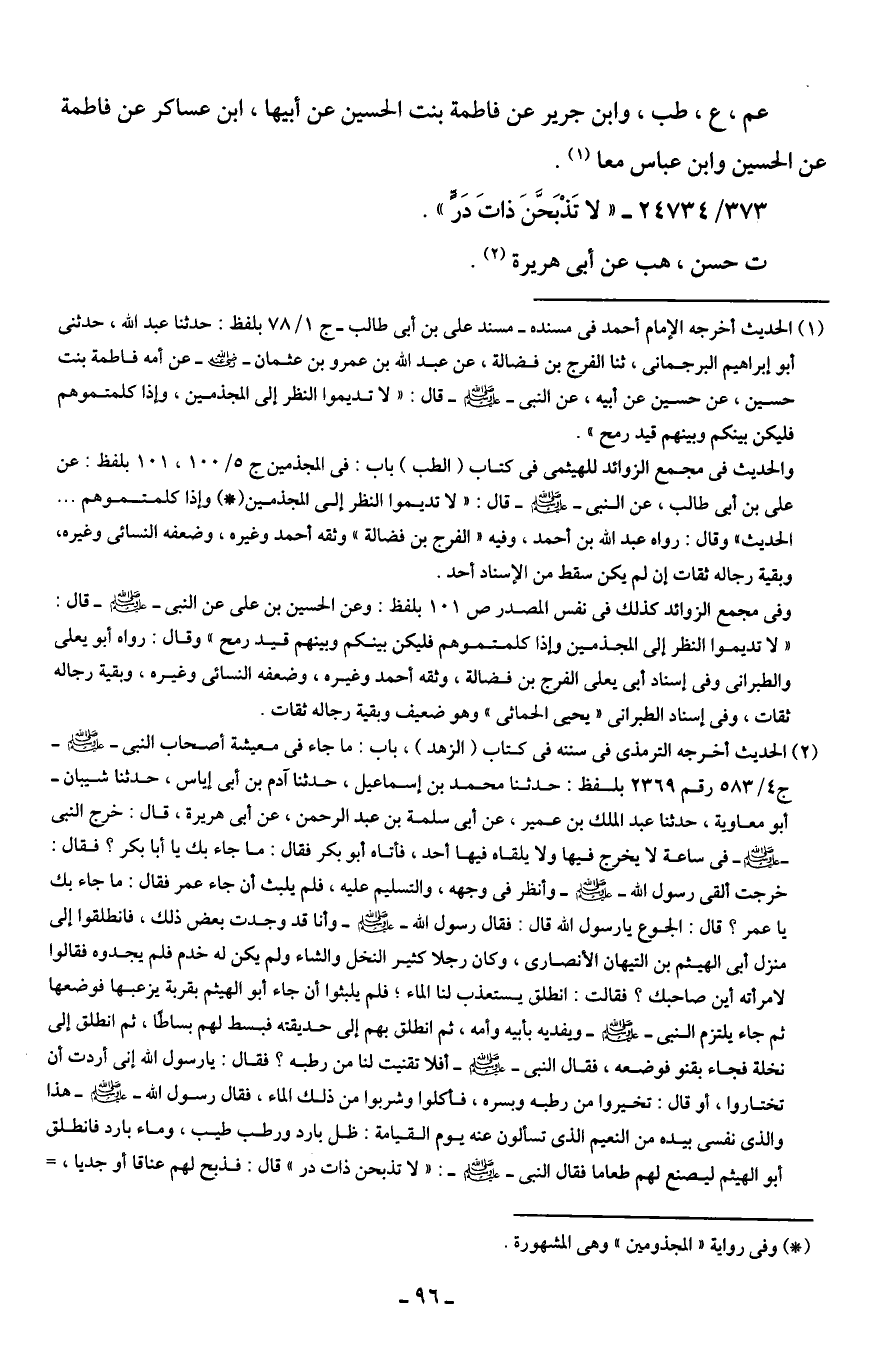 عم ، ع ، طب ، وابن جرير عن فاطمة بنت الحسين عن أبيها ، ابن عساكر عن فاطمة
عن الحسين وابن عباس معا (١) .
٣٧٣/ ٢٤٧٣٤ ـ « لا تَذْبَحَنَّ ذاتَ دَرٍّ » .
ت حسن ، هب عن أبى هريرة (٢) .
(١) الحديث أخرجه الإمام أحمد فى مسنده ـ مسند على بن أبى طالب ـ ج ١/ ٧٨ بلفظ : حدثنا عبد الله ، حدثنى
أبو إبراهيم البرجمانى ، ثنا الفرج بن فضالة ، عن عبد الله بن عمرو بن عثمان ـ رضي الله عنه ـ عن أمه فاطمة بنت
حسين ، عن حسين عن أبيه ، عن النبى ـ ﷺ ـ قال : « لا تديموا النظر إلى المجذمين ، وإذا كلمتموهم
فليكن بينكم وبينهم قيد رمح » .
والحديث فى مجمع الزوائد للهيثمى فى كتاب ( الطب ) باب : فى المجذمين ج ٥/ ١٠٠ ، ١٠١ بلفظ : عن
على بن أبى طالب ، عن النبى ـ ﷺ ـ قال : « لا تديموا النظر إلى المجذمين(*) وإذا كلمتموهم ...
الحديث» وقال : رواه عبد الله بن أحمد ، وفيه « الفرج بن فضالة » وثقه أحمد وغيره ، وضعفه النسائى وغيره،
وبقية رجاله ثقات إن لم يكن سقط من الإسناد أحد .
وفى مجمع الزوائد كذلك فى نفس المصدر ص ١٠١ بلفظ : وعن الحسين بن على عن النبى ـ ﷺ ـ قال :
« لا تديموا النظر إلى المجذمين وإذا كلمتموهم فليكن بينكم وبينهم قيد رمح » وقال : رواه أبو يعلى
والطبرانى وفى إسناد أبى يعلى الفرج بن فضالة ، وثقه أحمد وغيره ، وضعفه النسائى وغيره ، وبقية رجاله
ثقات ، وفى إسناد الطبرانى « يحيى الحمائى » وهو ضعيف وبقية رجاله ثقات .
(٢) الحديث أخرجه الترمذى فى سننه فى كتاب ( الزهد ) ، باب : ما جاء فى معيشة أصحاب النبى ـ ﷺ ـ
ج٤/ ٥٨٣ رقم ٢٣٦٩ بلفظ : حدثنا محمد بن إسماعيل ، حدثنا آدم بن أبى إياس ، حدثنا شيبان ـ
أبو معاوية ، حدثنا عبد الملك بن عمير ، عن أبى سلمة بن عبد الرحمن ، عن أبى هريرة ، قال : خرج النبى
ـ ﷺ ـ فى ساعة لا يخرج فيها ولا يلقاه فيها أحد ، فأتاه أبو بكر فقال : ما جاء بك يا أبا بكر ؟ فقال :
خرجت ألقى رسول الله ـ ﷺ ـ وأنظر فى وجهه ، والتسليم عليه ، فلم يلبث أن جاء عمر فقال : ما جاء بك
يا عمر ؟ قال : الجوع يارسول الله قال : فقال رسول الله ـ ﷺ ـ وأنا قد وجدت بعض ذلك ، فانطلقوا إلى
منزل أبى الهيثم بن التيهان الأنصارى ، وكان رجلا كثير النخل والشاء ولم يكن له خدم فلم يجدوه فقالوا
لامرأته أين صاحبك ؟ فقالت : انطلق يستعذب لنا الماء ؛ فلم يلبثوا أن جاء أبو الهيثم بقربة يزعبها فوضعها
ثم جاء يلتزم النبى ـ ﷺ ـ ويفديه بأبيه وأمه ، ثم انطلق بهم إلى حديقته فبسط لهم بساطًا ، ثم انطلق إلى
نخلة فجاء بقنو فوضعه ، فقال النبى ـ ﷺ ـ أفلا تقنيت لنا من رطبه ؟ فقال : يارسول الله إنى أردت أن
تختاروا ، أو قال : تخيروا من رطبه وبسره ، فأكلوا وشربوا من ذلك الماء ، فقال رسول الله ـ ﷺ ـ هذا
والذى نفسى بيده من النعيم الذى تسألون عنه يوم القيامة : ظل بارد ورطب طيب ، وماء بارد فانطلق
أبو الهيثم ليصنع لهم طعاما فقال النبى ـ ﷺ ـ : « لا تذبحن ذات در » قال : فذبح لهم عناقا أو جديا ، =
(*) وفى رواية « المجذومين » وهى المشهورة .
ـ ٩٦ ـ